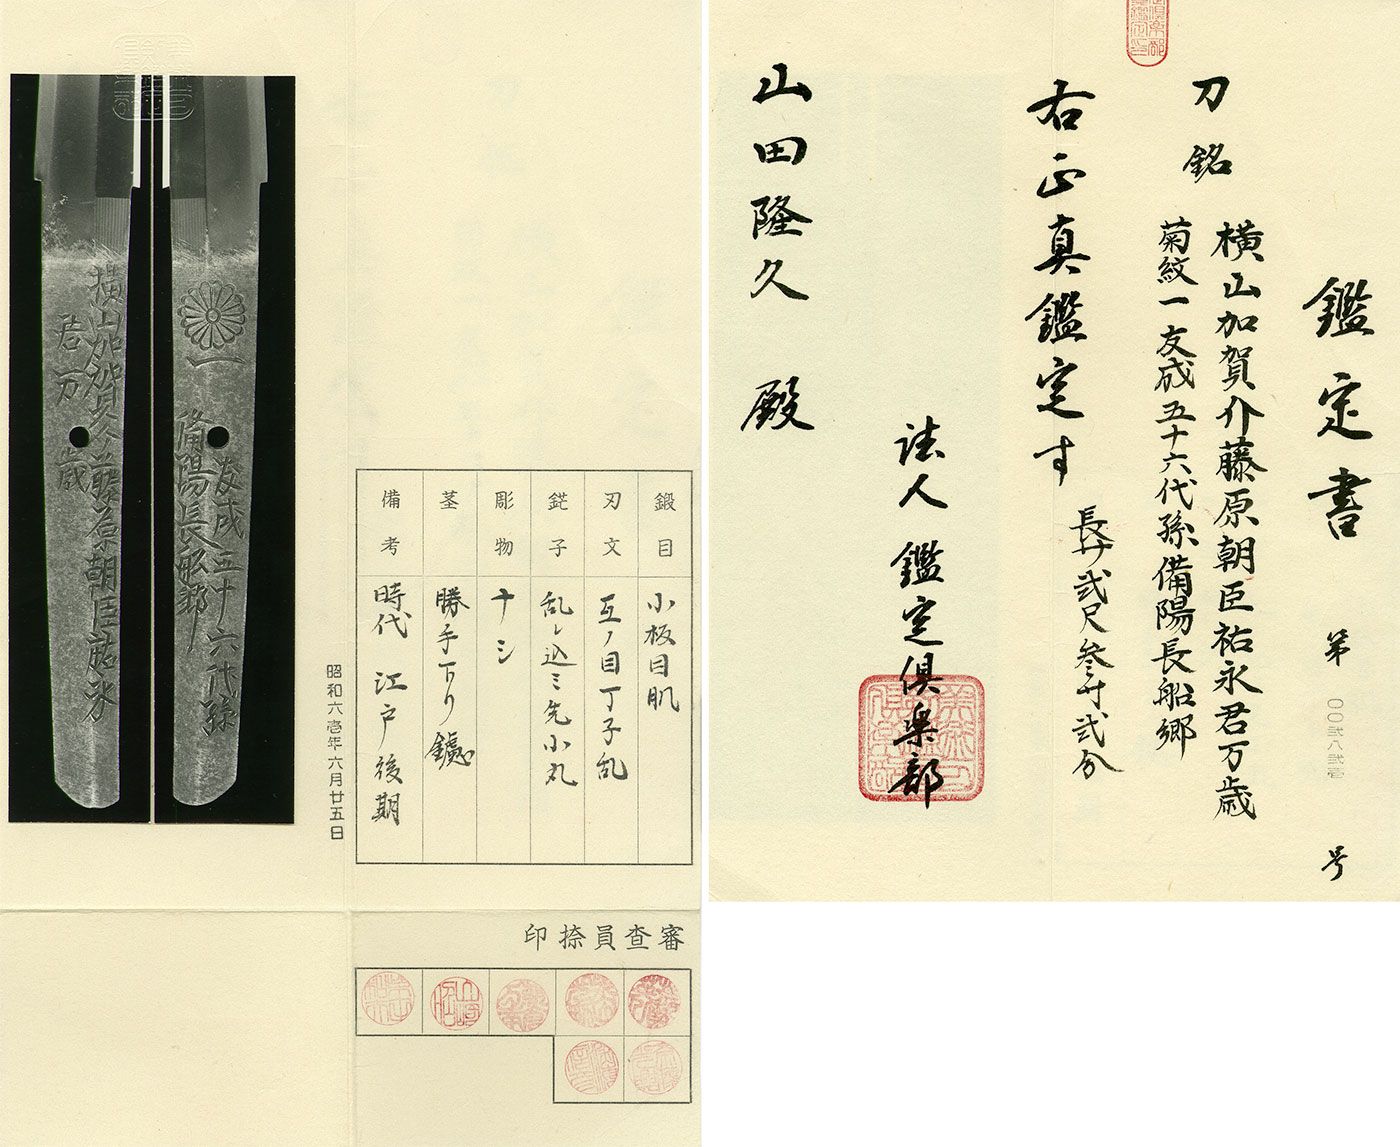 鑑定書 第 〇〇弐八弐壱 号
刀 銘
横山加賀介藤原朝臣祐永君万歳
菊紋一友成五十六代孫備陽長船郷
長サ弐尺参寸弐分
右正真鑑定す
法人 鑑定倶楽部
山田隆久 殿
一 友成五十六代孫
備陽長船郷
横山加賀介藤原朝臣祐永
君万歳
昭和六壱年六月廿五日
鍛目 小板目肌
刃文 互ノ目丁子乱
鋩子 乱レ込ミ先小丸
彫物 ナシ
茎 勝手下り鑢
備考 時代 江戸後期
審査員捺印